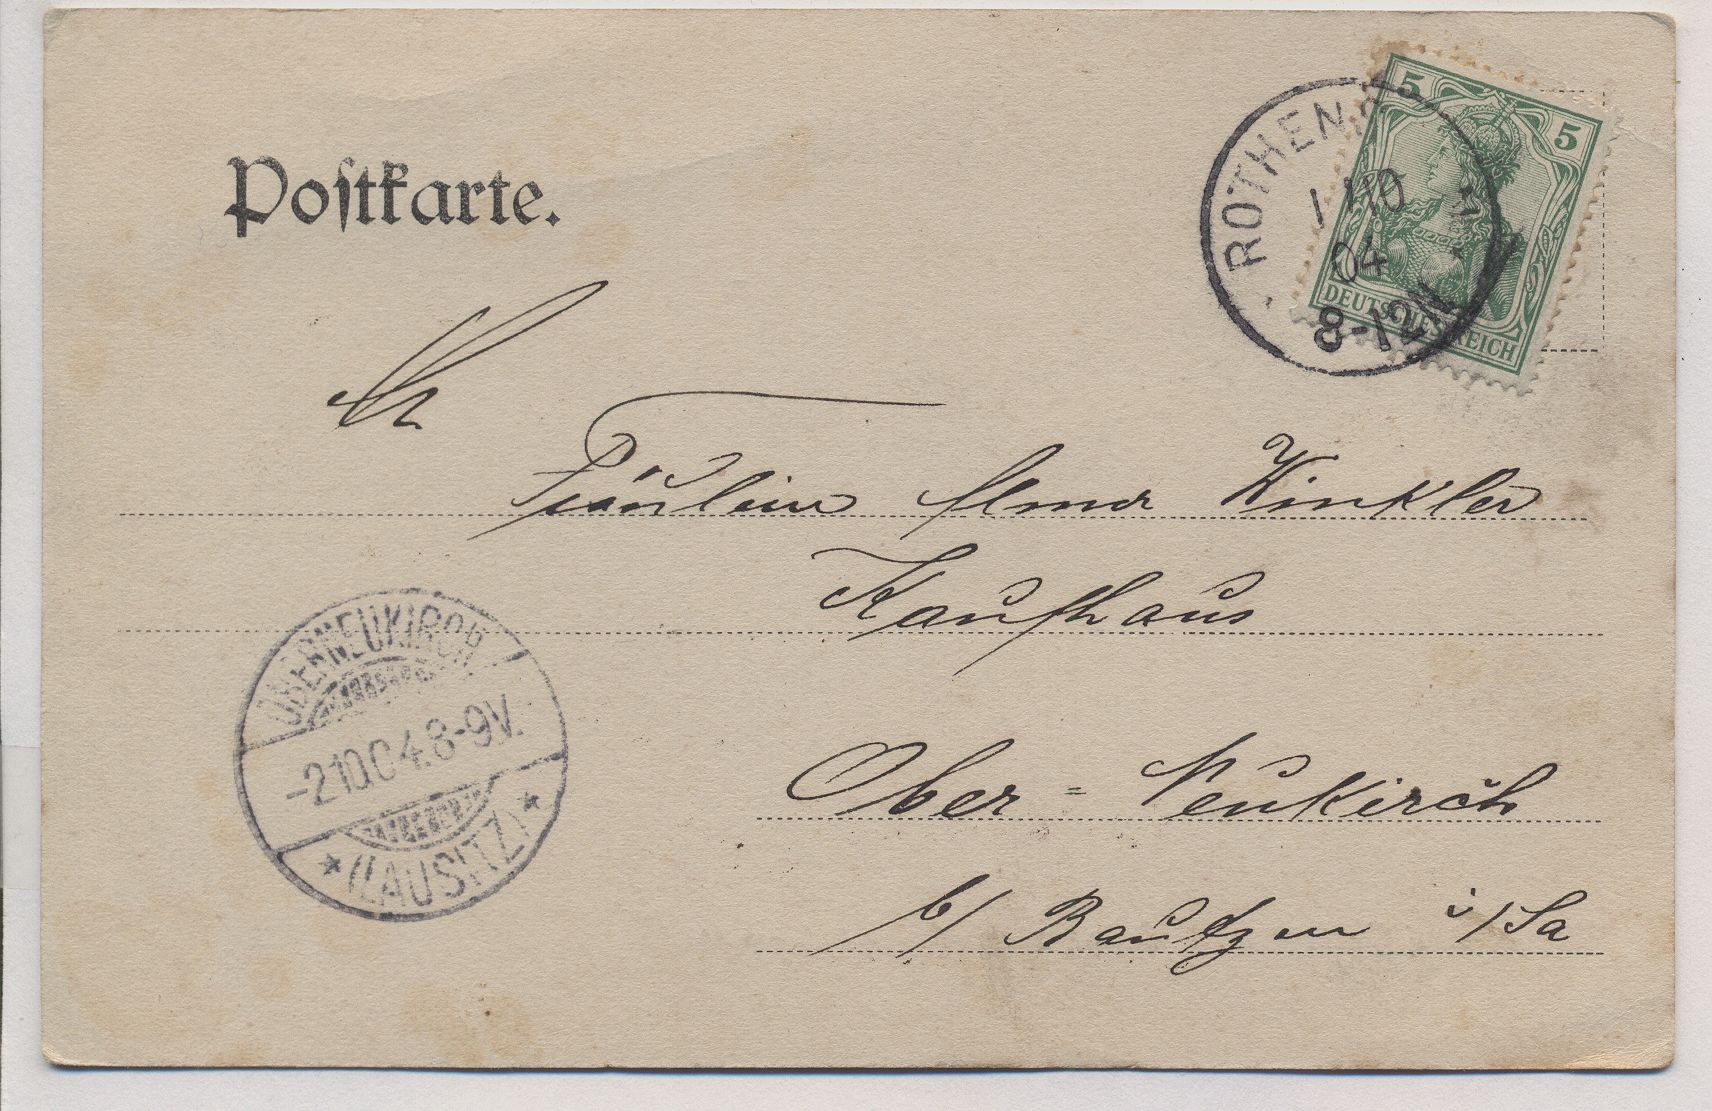 Postkarte.
5 5
ROTHEN
1 10
04
8-12N
DEUTSCHES REICH
An
Fräulein Elma Winkler
Kaufhaus
Ober = Neukirch
b/ Bautzen i/Sa
OBERNEUKIRCH
-2.10.04.8-9V.
* (LAUSITZ) *